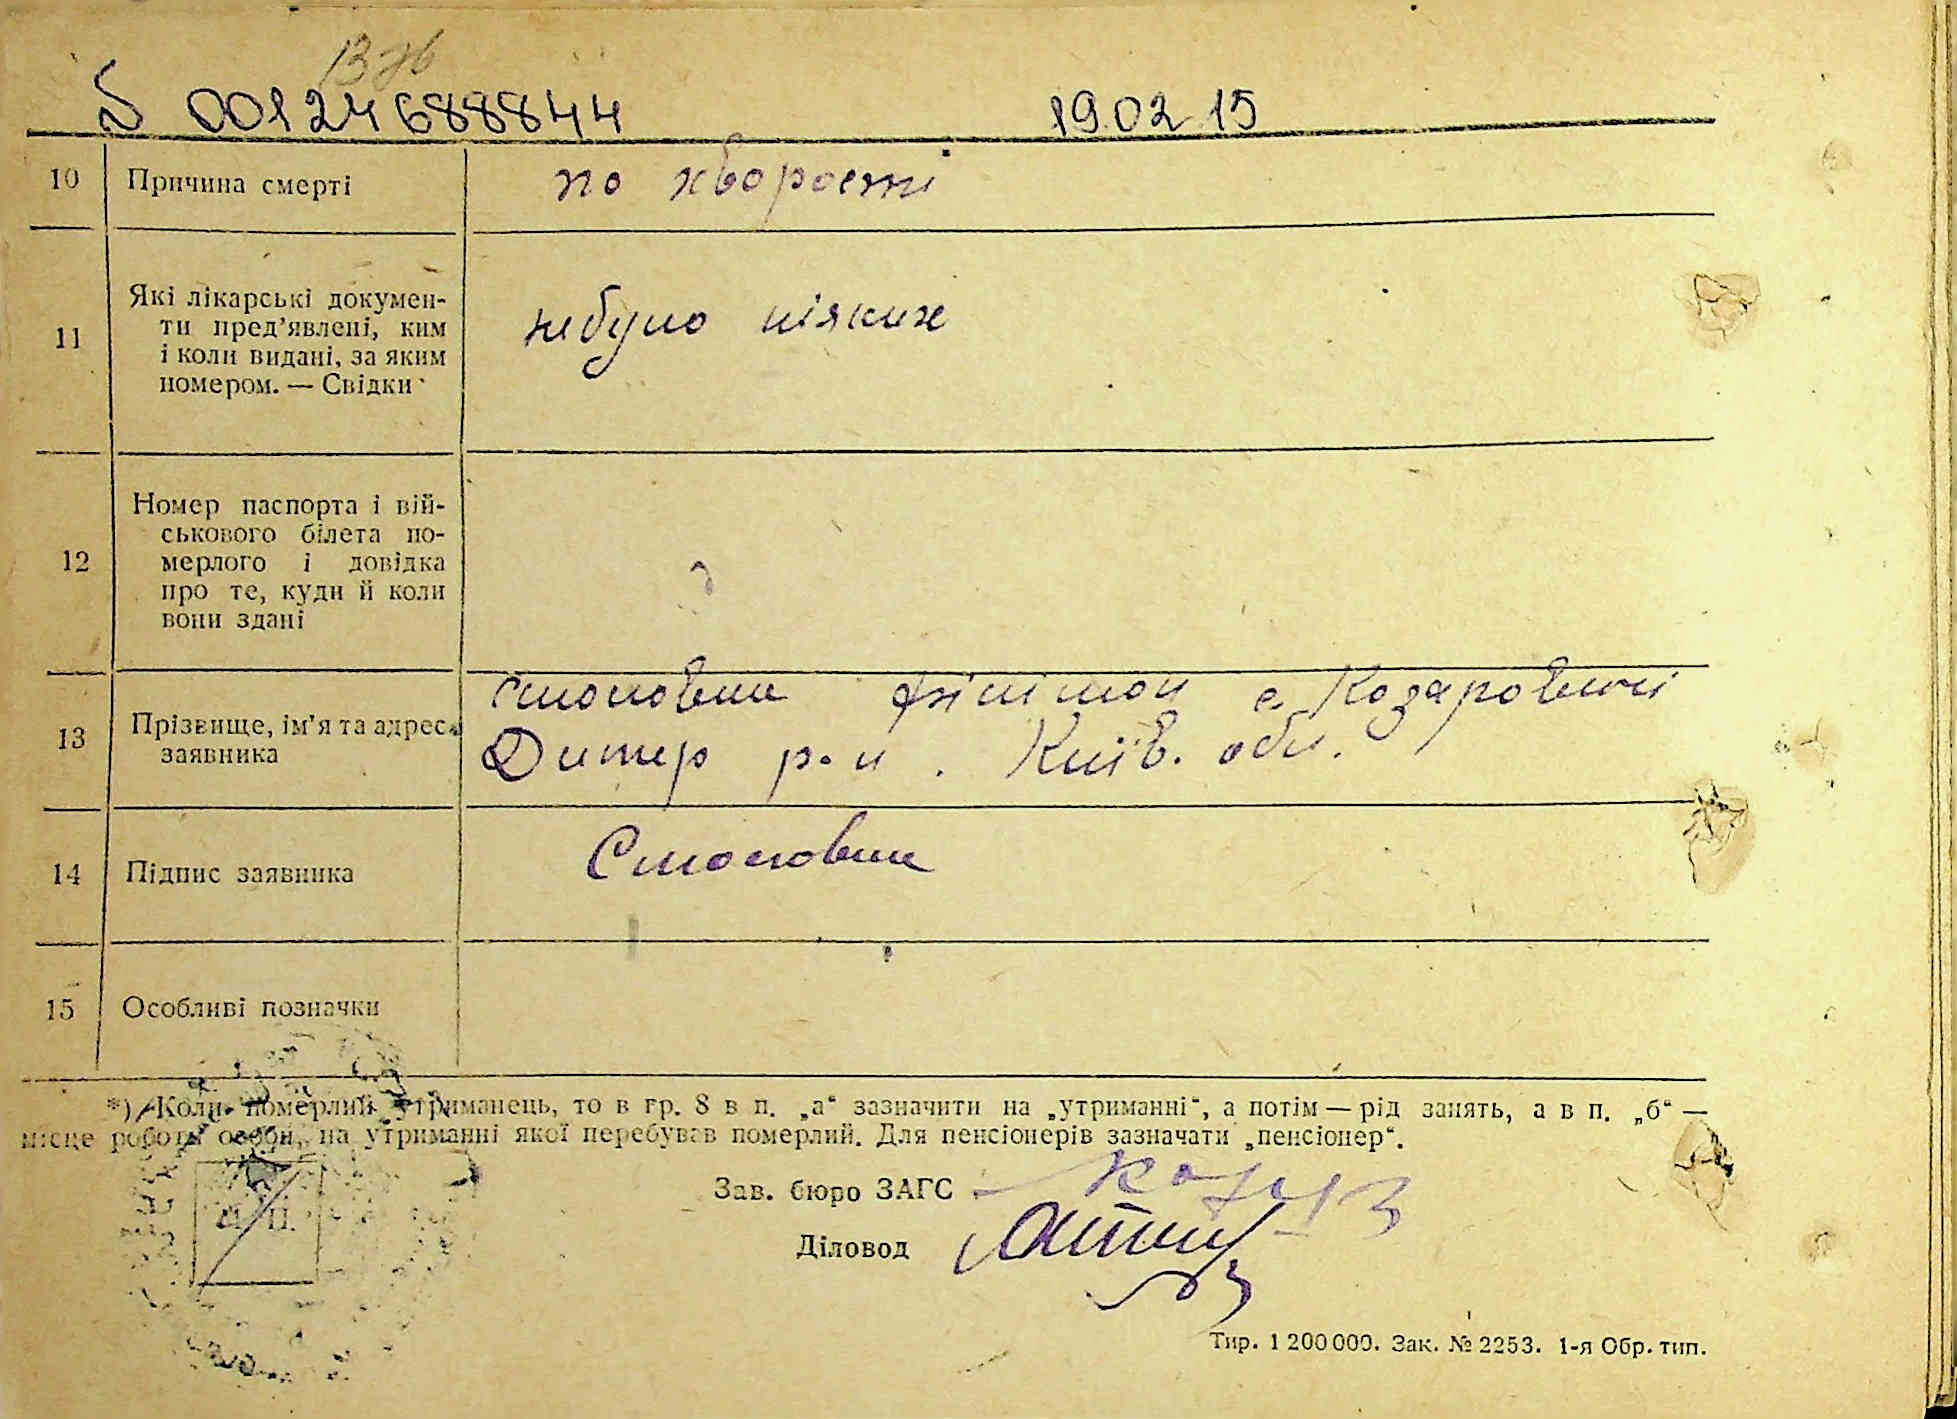 00124688844 19.02.15
10 Причина смерті по хворості
11 Які лікарські докумен-
ти пред’явлені, ким
і коли видані, за яким
номером. — Свідки
небуло ніяких
12 Номер паспорта і вій-
ськового білета по-
мерлого і довідка
про те, куди й коли
вони здані
13 Прізвище, ім’я та адреса
заявника
Філімон с. Козаровичі
Димер р-н. Київ. обл.
14 Підпис заявника
15 Особливі позначки
*) Коли померлий утриманець, то в гр. 8 в п. „а“ зазначити на „утриманні“, а потім — рід занять, а в п. „б“ —
місце роботи особи, на утриманні якої перебував померлий. Для пенсіонерів зазначати „пенсіонер“.
Зав. бюро ЗАГС
М. П.
Діловод
Тир. 1 200 000. Зак. № 2253. 1-я Обр. тип.